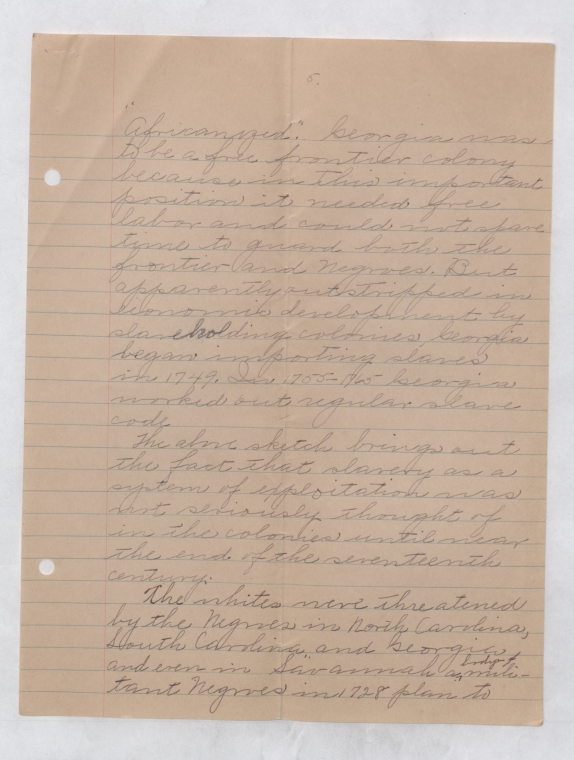 5.
"Africanized." Georgia was
to be a free frontier colony
because in this important
position it needed free
labor and could not spare
time to guard both the
frontier and Negroes. But
apparently outstripped in
economic development by
slaveholding colonies Georgia
began importing slaves
in 1749. In 1755-1765 Georgia
worked out regular slave
code.
The above sketch brings out
the fact that slavery as a
system of exploitation was
not seriously thought of
in the colonies until near
the end of the seventeenth
century.
The whites were threatened
by the Negroes in North Carolina,
South Carolina and Georgia,
and even in Savannah a body of mili-
tant Negroes in 1728 plan to